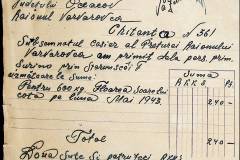 Judetului Oceacov
Raionul Varvarovca
Chitanța N 361
Subsemnatul casier al Preturei Raionului
Varvarovca am primit dela pers. prim.
Surino prin Staromscĭ T
următoarele sume:
Suma
A R K S Ps.
Pentru 600 kg. Floarea Soarelui
cota pe luna Mai 1943.
240 -
240 -
Total
Doua sute si patruzeci RKS